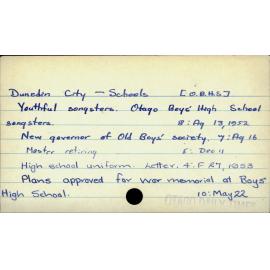 Dunedin City - Schools [O.B.H.S]
Youthful songsters. Otago Boys' High School
songsters. 8: Ag 13, 1952
New governor of Old Boys' society. 7: Ag 16
Master retiring 5: Dec 11
High school uniform. Letter. 4: F 27, 1953
Plans approved for war memorial at Boys'
High School. 10: May 22
OTAGO DAILY TIMES